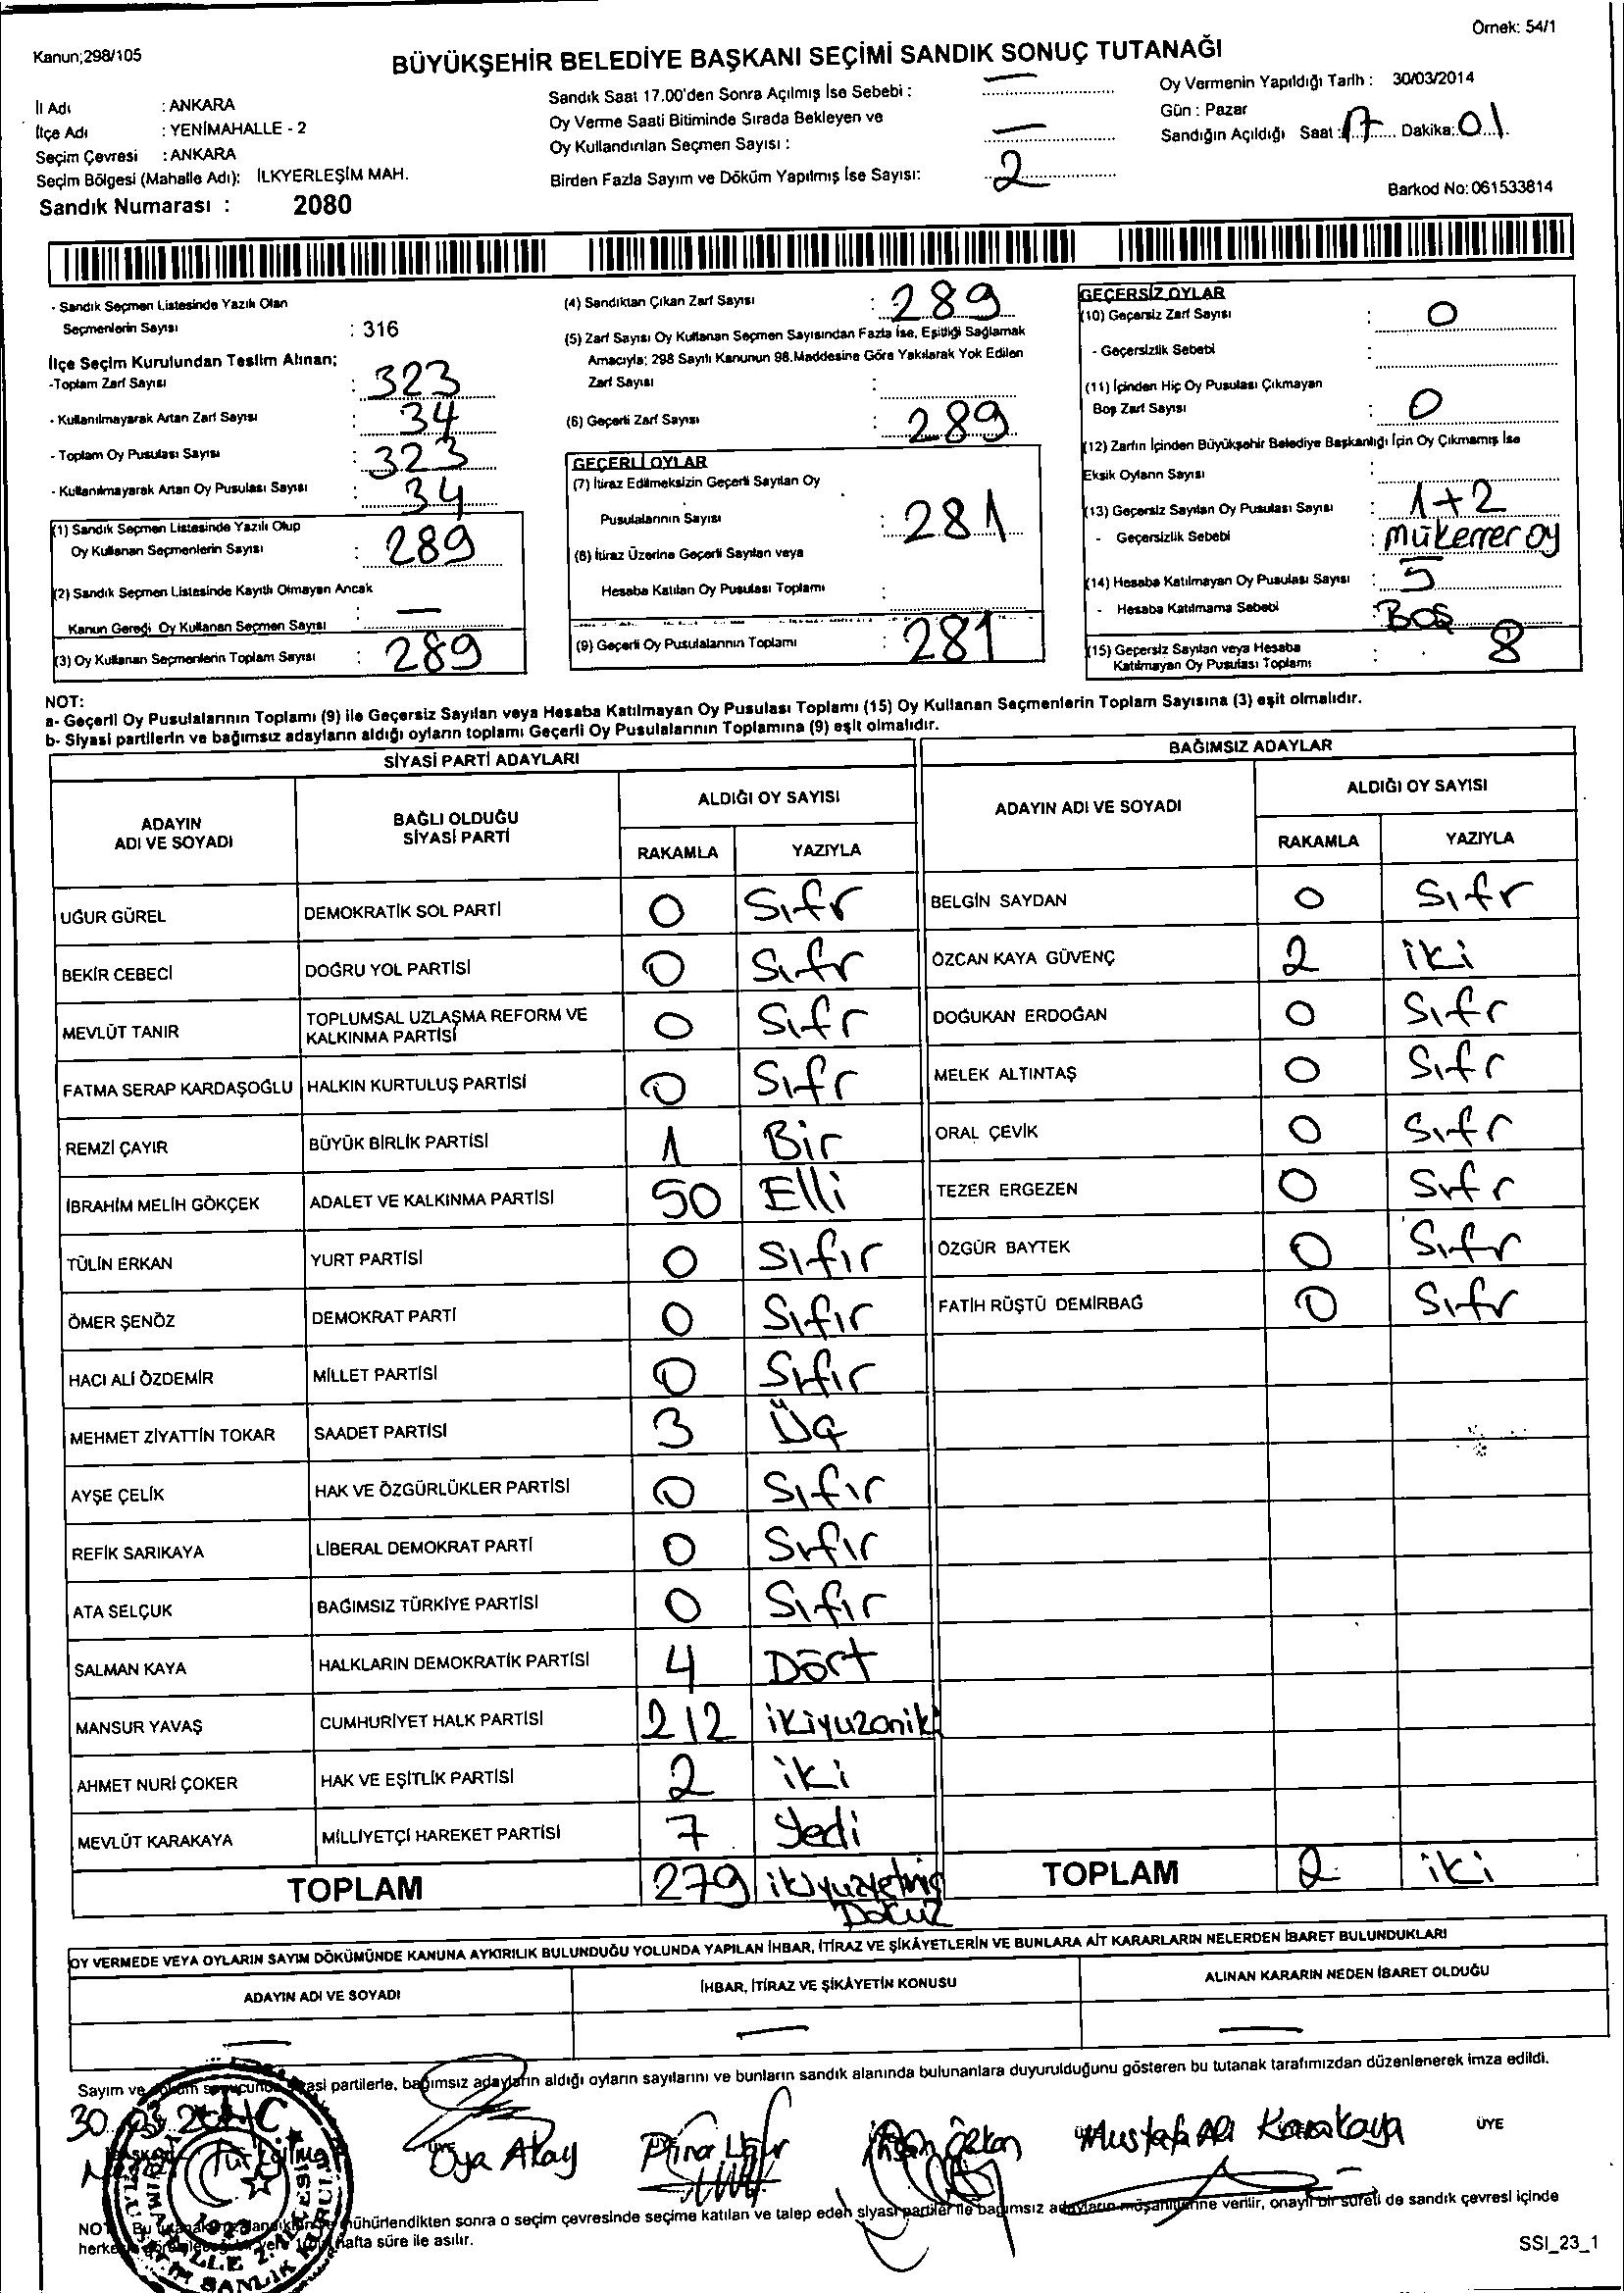 Örnek: 54/1
Kanun;298/105
BÜYÜKŞEHİR BELEDİYE BAŞKANI SEÇİMİ SANDIK SONUÇ TUTANAĞI
İl Adı : ANKARA
İlçe Adı : YENİMAHALLE - 2
Seçim Çevresi : ANKARA
Seçim Bölgesi (Mahalle Adı): İLKYERLEŞİM MAH.
Sandık Numarası : 2080
Sandık Saat 17.00'den Sonra Açılmış İse Sebebi : —
Oy Verme Saati Bitiminde Sırada Bekleyen ve
Oy Kullandırılan Seçmen Sayısı : —
Birden Fazla Sayım ve Döküm Yapılmış İse Sayısı: 2
Oy Vermenin Yapıldığı Tarih : 30/03/2014
Gün : Pazar
Sandığın Açıldığı Saat : 17 Dakika: 01
Barkod No: 061533814
- Sandık Seçmen Listesinde Yazılı Olan
Seçmenlerin Sayısı : 316
İlçe Seçim Kurulundan Teslim Alınan;
-Toplam Zarf Sayısı : 323
- Kullanılmayarak Artan Zarf Sayısı : 34
- Toplam Oy Pusulası Sayısı : 323
- Kullanılmayarak Artan Oy Pusulası Sayısı : 34
(1) Sandık Seçmen Listesinde Yazılı Olup
Oy Kullanan Seçmenlerin Sayısı : 289
(2) Sandık Seçmen Listesinde Kayıtlı Olmayan Ancak
Kanun Gereği Oy Kullanan Seçmen Sayısı : —
(3) Oy Kullanan Seçmenlerin Toplam Sayısı : 289
(4) Sandıktan Çıkan Zarf Sayısı : 289
(5) Zarf Sayısı Oy Kullanan Seçmen Sayısından Fazla İse, Eşitliği Sağlamak
Amacıyla; 298 Sayılı Kanunun 98.Maddesine Göre Yakılarak Yok Edilen
Zarf Sayısı :
(6) Geçerli Zarf Sayısı : 289
GEÇERLİ OYLAR
(7) İtiraz Edilmeksizin Geçerli Sayılan Oy
Pusulalarının Sayısı : 281
(8) İtiraz Üzerine Geçerli Sayılan veya
Hesaba Katılan Oy Pusulası Toplamı :
(9) Geçerli Oy Pusulalarının Toplamı : 281
GEÇERSİZ OYLAR
(10) Geçersiz Zarf Sayısı : 0
- Geçersizlik Sebebi :
(11) İçinden Hiç Oy Pusulası Çıkmayan
Boş Zarf Sayısı : 0
(12) Zarfın İçinden Büyükşehir Belediye Başkanlığı İçin Oy Çıkmamış İse
Eksik Oyların Sayısı :
(13) Geçersiz Sayılan Oy Pusulası Sayısı : 1+2
- Geçersizlik Sebebi : mükerrer oy
(14) Hesaba Katılmayan Oy Pusulası Sayısı : 5
- Hesaba Katılmama Sebebi : BOŞ
(15) Geçersiz Sayılan veya Hesaba
Katılmayan Oy Pusulası Toplamı : 8
NOT:
a- Geçerli Oy Pusulalarının Toplamı (9) ile Geçersiz Sayılan veya Hesaba Katılmayan Oy Pusulası Toplamı (15) Oy Kullanan Seçmenlerin Toplam Sayısına (3) eşit olmalıdır.
b- Siyasi partilerin ve bağımsız adayların aldığı oyların toplamı Geçerli Oy Pusulalarının Toplamına (9) eşit olmalıdır.
SİYASİ PARTİ ADAYLARI
ADAYIN ADI VE SOYADI BAĞLI OLDUĞU SİYASİ PARTİ ALDIĞI OY SAYISI
RAKAMLA YAZIYLA
UĞUR GÜREL DEMOKRATİK SOL PARTİ 0 Sıfr
BEKİR CEBECİ DOĞRU YOL PARTİSİ 0 Sıfr
MEVLÜT TANIR TOPLUMSAL UZLAŞMA REFORM VE KALKINMA PARTİSİ 0 Sıfr
FATMA SERAP KARDAŞOĞLU HALKIN KURTULUŞ PARTİSİ 0 Sıfr
REMZİ ÇAYIR BÜYÜK BİRLİK PARTİSİ 1 Bir
İBRAHİM MELİH GÖKÇEK ADALET VE KALKINMA PARTİSİ 50 Elli
TÜLİN ERKAN YURT PARTİSİ 0 Sıfır
ÖMER ŞENÖZ DEMOKRAT PARTİ 0 Sıfır
HACI ALİ ÖZDEMİR MİLLET PARTİSİ 0 Sıfır
MEHMET ZİYATTİN TOKAR SAADET PARTİSİ 3 Üç
AYŞE ÇELİK HAK VE ÖZGÜRLÜKLER PARTİSİ 0 Sıfır
REFİK SARIKAYA LİBERAL DEMOKRAT PARTİ 0 Sıfır
ATA SELÇUK BAĞIMSIZ TÜRKİYE PARTİSİ 0 Sıfır
SALMAN KAYA HALKLARIN DEMOKRATİK PARTİSİ 4 Dört
MANSUR YAVAŞ CUMHURİYET HALK PARTİSİ 212 ikiyuzoniki
AHMET NURİ ÇOKER HAK VE EŞİTLİK PARTİSİ 2 iki
MEVLÜT KARAKAYA MİLLİYETÇİ HAREKET PARTİSİ 7 Yedi
TOPLAM 279
BAĞIMSIZ ADAYLAR
ADAYIN ADI VE SOYADI ALDIĞI OY SAYISI
RAKAMLA YAZIYLA
BELGİN SAYDAN 0 Sıfr
ÖZCAN KAYA GÜVENÇ 2 iki
DOĞUKAN ERDOĞAN 0 Sıfr
MELEK ALTINTAŞ 0 Sıfr
ORAL ÇEVİK 0 Sıfr
TEZER ERGEZEN 0 Sıfr
ÖZGÜR BAYTEK 0 Sıfr
FATİH RÜŞTÜ DEMİRBAĞ 0 Sıfr
TOPLAM 2 iki
OY VERMEDE VEYA OYLARIN SAYIM DÖKÜMÜNDE KANUNA AYKIRILIK BULUNDUĞU YOLUNDA YAPILAN İHBAR, İTİRAZ VE ŞİKÂYETLERİN VE BUNLARA AİT KARARLARIN NELERDEN İBARET BULUNDUKLARI
ADAYIN ADI VE SOYADI İHBAR, İTİRAZ VE ŞİKÂYETİN KONUSU ALINAN KARARIN NEDEN İBARET OLDUĞU
— — —
Sayım ve partilerle, bağımsız adayların aldığı oyların sayılarını ve bunların sandık alanında bulunanlara duyurulduğunu gösteren bu tutanak tarafımızdan düzenlenerek imza edildi.
Oya Akay Pınar Uğur Mustafa Ali Karakaya ÜYE
mühürlendikten sonra o seçim çevresinde seçime katılan ve talep eden siyasi partiler ile bağımsız adayların müşahitlerine verilir, onaylı bir sureti de sandık çevresi içinde
hafta süre ile asılır.
SSI_23_1